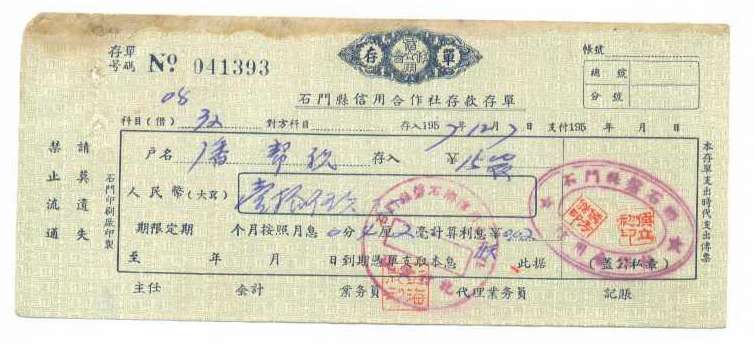 存單
号碼 № 041393
存 單
帳號
總號
分號
石門縣信用合作社存款存單
08
科目(借) 32 對方科目 存入1957年12月7日 支付195 年 月 日
户名 潘 幫 存入 ¥15
人民幣(大寫) 壹拾伍元
期限定期 个月按照月息0分4厘2毫計算利息¥0.02
至 年 月 日到期憑單支取本息 此据 (蓋公私章)
主任 会計 業务員 代理業务員 記賬
請莫遺失
禁止流通
石門印刷廠印製
本存單支出時代支出傳票
石門縣磐石鄉